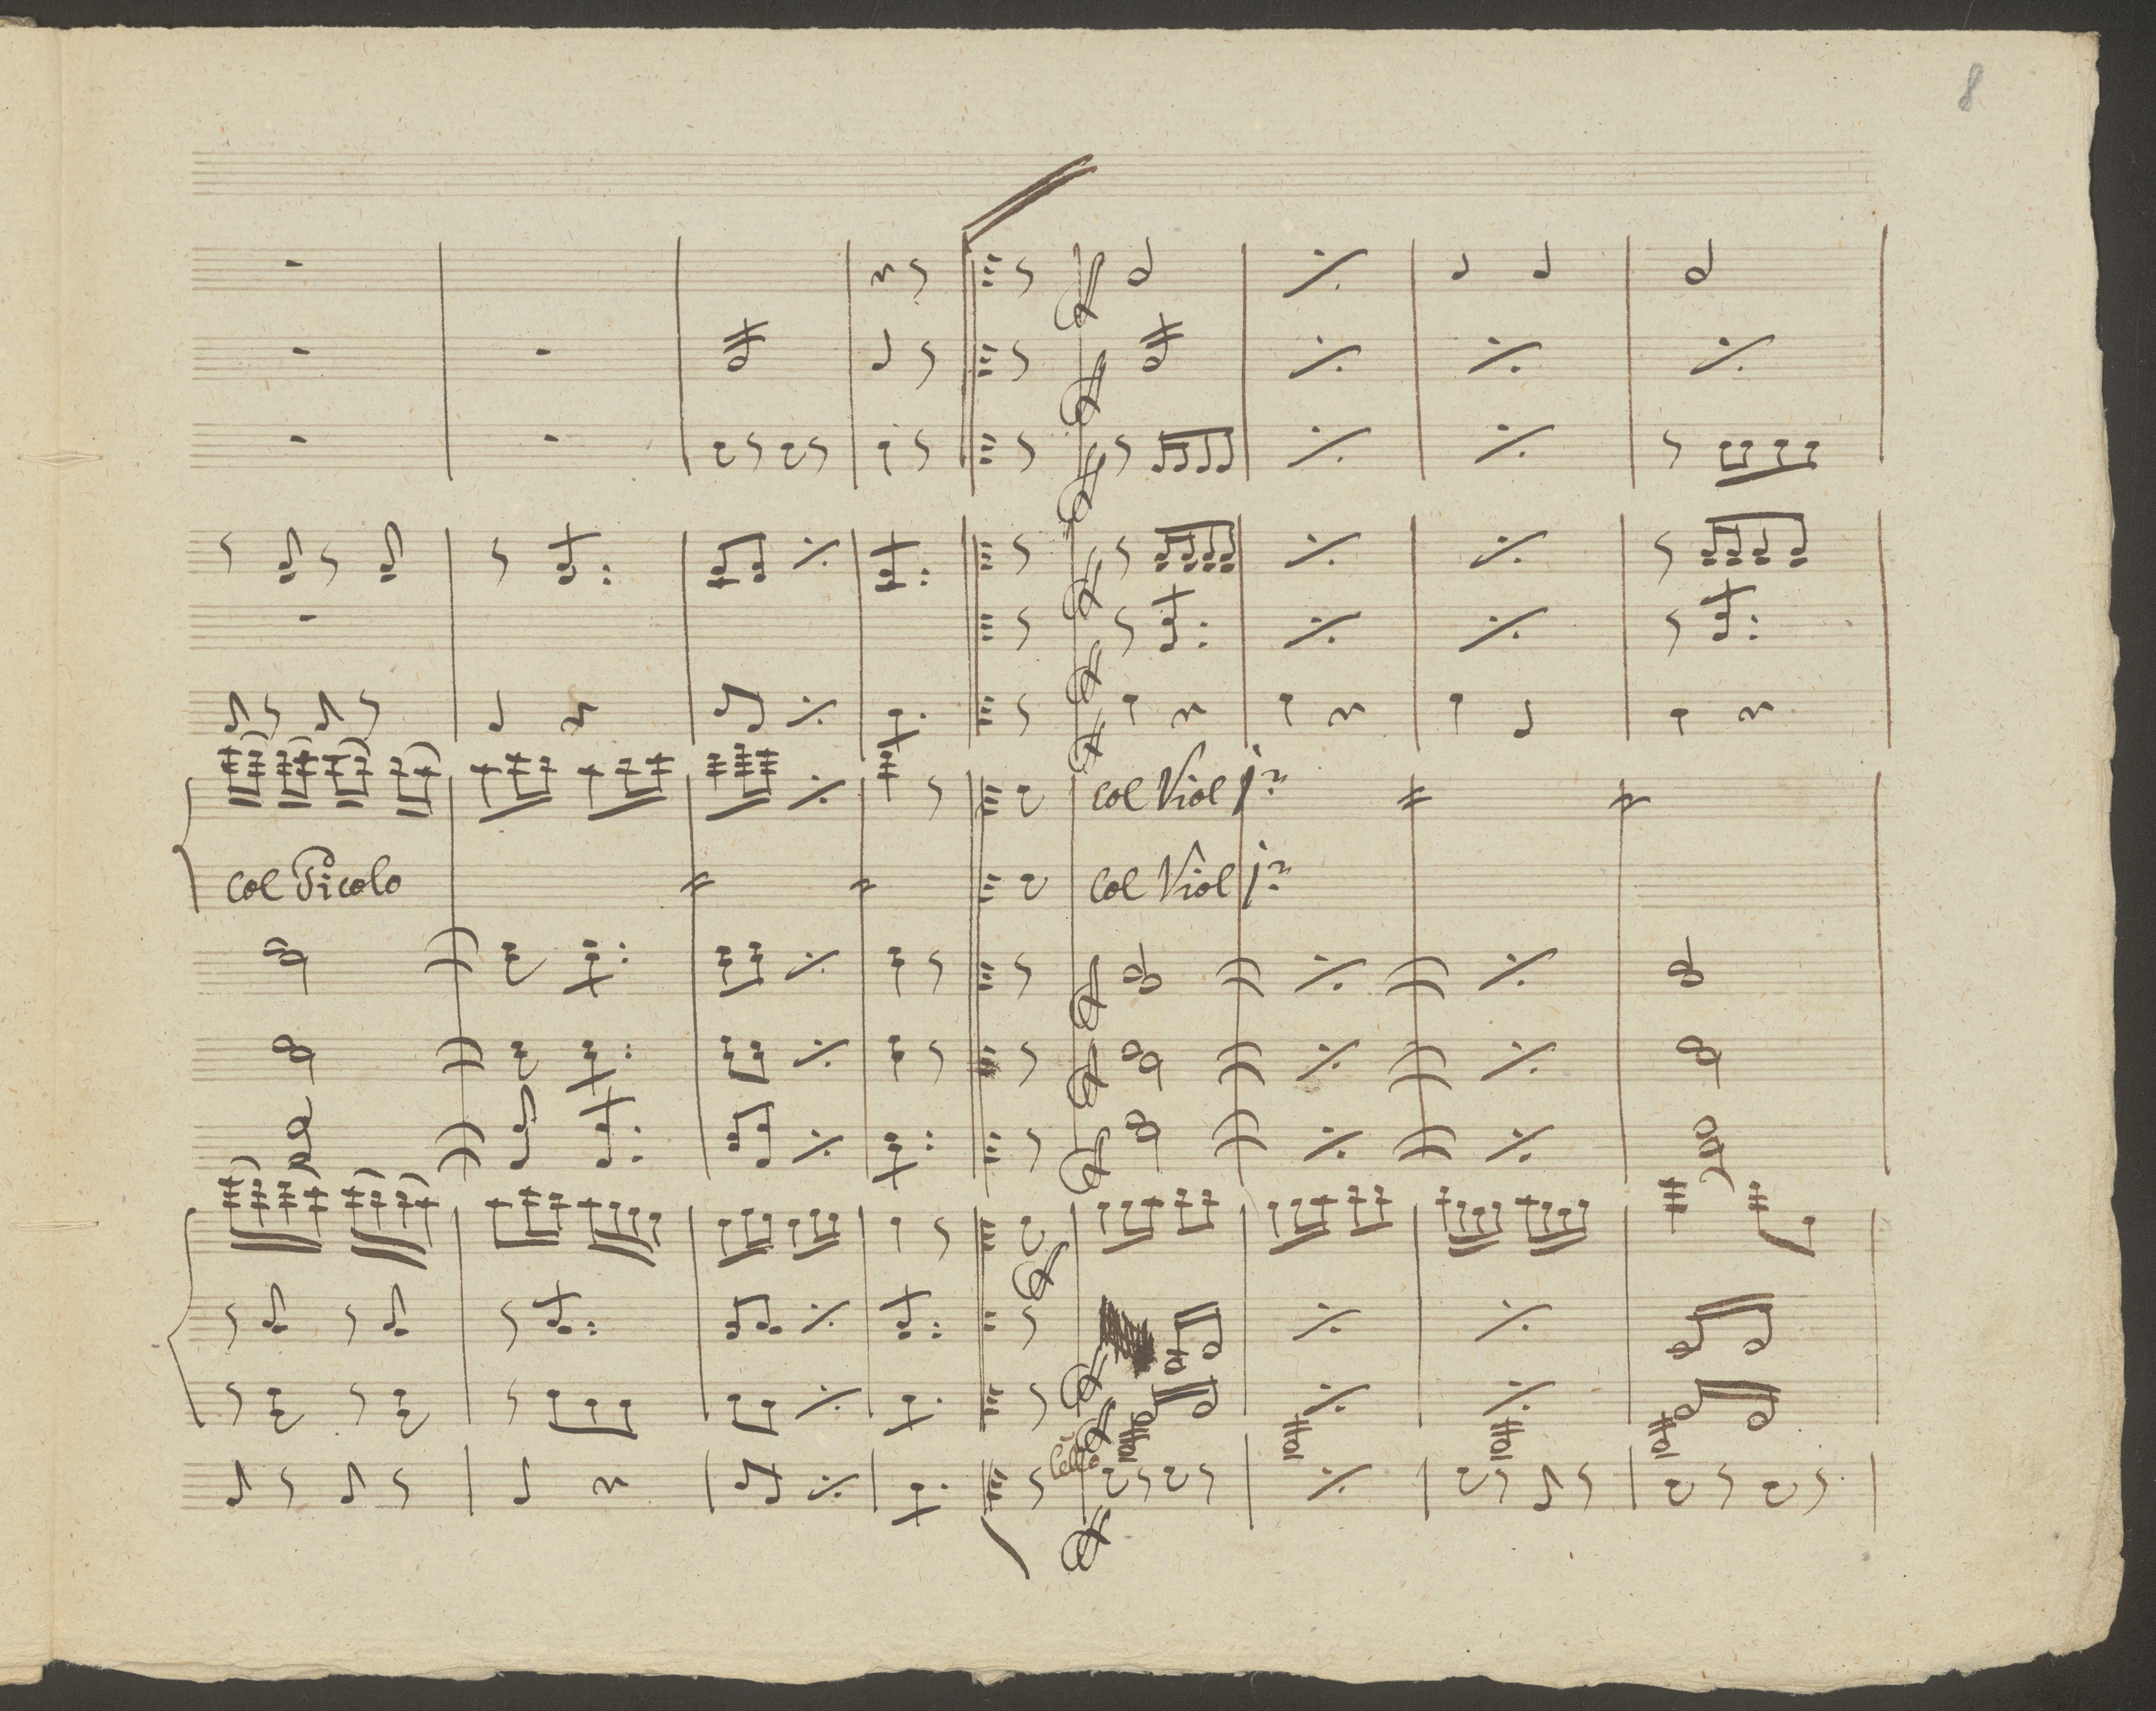 8
col Viol 1º
col Picolo
col Viol 1º
Cello